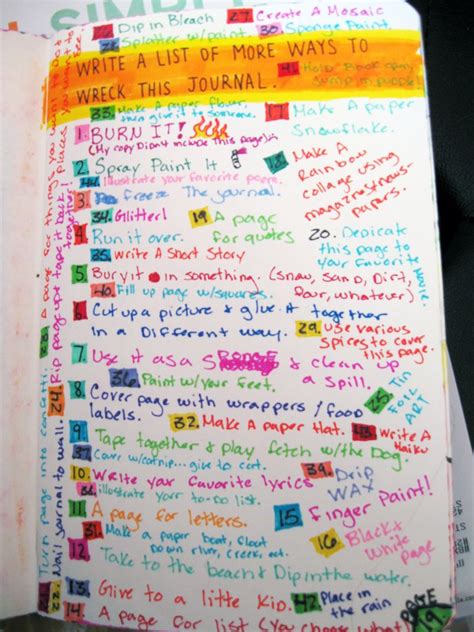 SIMPL
26. Dip in Bleach 27. Create A Mosaic
28. Splatter w/paint. 30. Sponge Paint.
WRITE A LIST OF MORE WAYS TO
WRECK THIS JOURNAL.
41. Hold Book
33. Make A paper flower,
then give it to someone.
17. Make A paper
snowflake.
1. BURN IT!
(My copy Didn't include this page)
2. Spray Paint It
18. Make A
Rainbow
collage using
magazines+news-
papers.
illustrate your favorite poem.
3. freeze The journal.
34. Glitter!
19. A page
for quotes
4. Run it over.
20. Dedicate
this page to
your favorite
movie
35. Write A Short Story
5. Bury it in something. (Snow, sand, Dirt,
flour, whatever)
40. Fill up page w/squares.
6. Cut up a picture & glue it together
in a Different way.
29. Use various
spices to cover
this page.
7. Use it as a SPONGE & clean up
a spill.
36. Paint w/ your feet.
25. Tin
FOIL
ART
8. Cover page with wrappers / food
labels.
32. Make A paper Hat.
43. Write A
Haiku
9. Tape together & play fetch w/the Dog.
37. Cover w/catnip... give to cat.
10. Write your favorite lyrics
39. Drip
WAX
38. illustrate your to-do list.
11. A page for letters.
15. Finger Paint!
31. Make a paper boat, float
down river, creek, ect.
16. Black &
White
page
12. Take to the beach & Dip in the water.
13. Give to a little kid.
42. Place in
the rain
14. A page for a list (you choose what)
PAGE
19.
Turn page into confetti.
22. Nail journal to wall.
24. Rip page up + tape it back
together!
23. A page for things you
places you want to